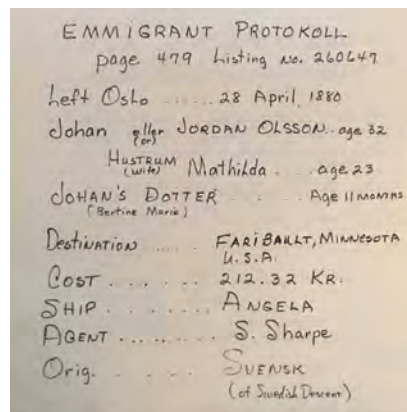 EMMIGRANT PROTOKOLL
page 479 Listing no. 260647
Left Oslo ...... 28 April, 1880
Johan eller JORDAN OLSSON.. age 32
(or)
HUSTRUM Mathilda .... age 23
(wife)
JOHAN'S DOTTER - . . . Age 11 MONTHS
(Bertine Marie)
DESTINATION ..... FARIBAULT, MINNESOTA
U.S.A.
COST ...... 212.32 KR.
SHIP ........ ANGELA
AGENT ........ S. Sharpe
Orig. ..... SVENSK
(of Swedish Descent)